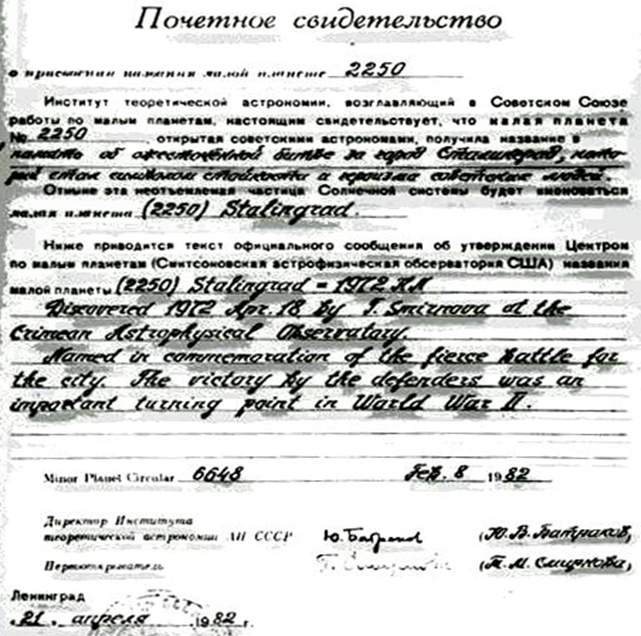 Почетное свидетельство
о присвоении названия малой планете 2250
Институт теоретической астрономии, возглавляющий в Советском Союзе
работы по малым планетам, настоящим свидетельствует, что малая планета
№ 2250, открытая советскими астрономами, получила название в
память об ожесточённой битве за город Сталинград, кото-
рый стал символом стойкости и героизма советских людей.
Отныне эта неотъемлемая частица Солнечной системы будет именоваться
малая планета (2250) Stalingrad.
Ниже приводится текст официального сообщения об утверждении Центром
по малым планетам (Смитсоновская астрофизическая обсерватория США) названия
малой планеты (2250) Stalingrad = 1972 HN
Discovered 1972 Apr. 18 by T. Smirnova at the
Crimean Astrophysical Observatory.
Named in commemoration of the fierce battle for
the city. The victory by the defenders was an
important turning point in World War II.
Minor Planet Circular 6648 Feb. 8 1982
Директор Института
теоретической астрономии АН СССР Ю. Батраков (Ю. В. Батраков)
Первооткрыватель (Т. М. Смирнова)
Ленинград
21. апреля 1982 г.